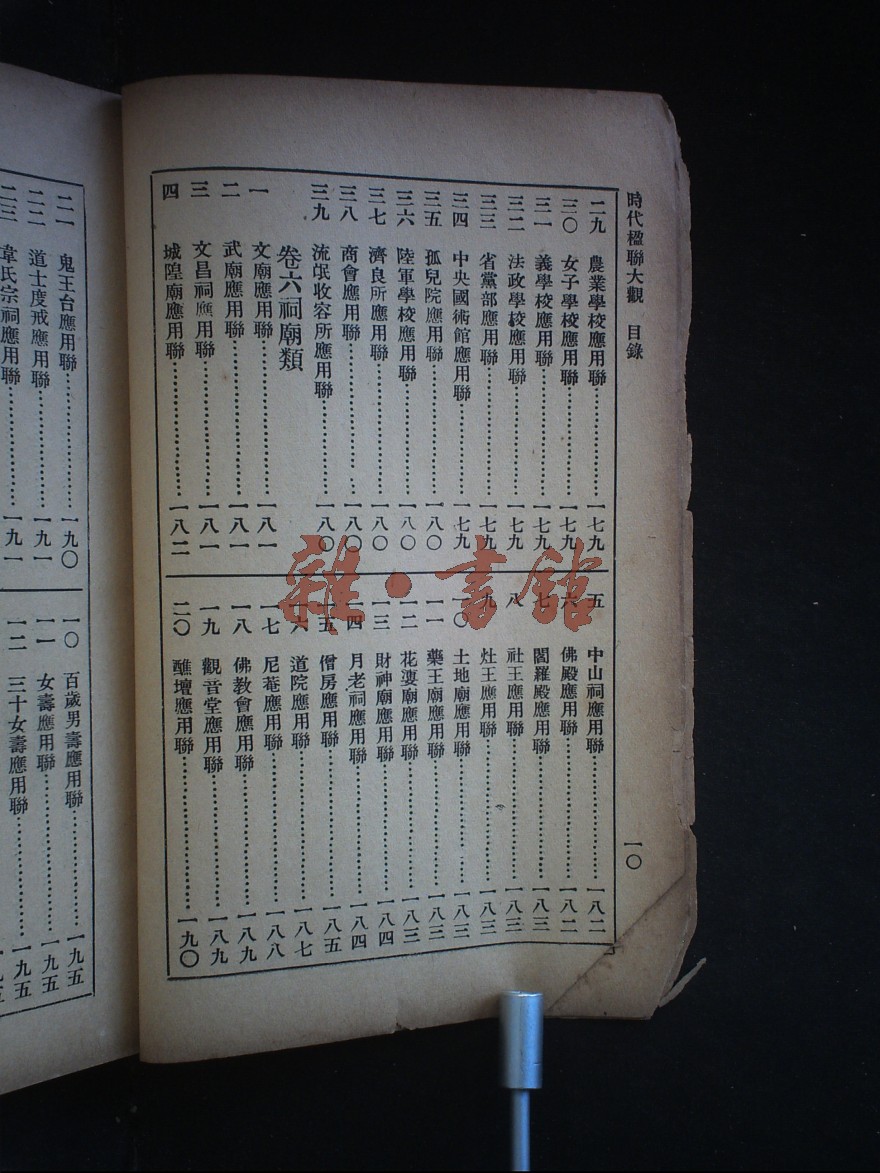 時代楹聯大觀　目錄
一〇
二九　農業學校應用聯……一七九
三〇　女子學校應用聯……一七九
三一　義學校應用聯……一七九
三二　法政學校應用聯……一七九
三三　省黨部應用聯……一七九
三四　中央國術館應用聯……一七九
三五　孤兒院應用聯……一八〇
三六　陸軍學校應用聯……一八〇
三七　濟良所應用聯……一八〇
三八　商會應用聯……一八〇
三九　流氓收容所應用聯……一八〇
卷六　祠廟類
一　文廟應用聯……一八一
二　武廟應用聯……一八一
三　文昌祠應用聯……一八一
四　城隍廟應用聯……一八二
五　中山祠應用聯……一八二
六　佛殿應用聯……一八二
七　閻羅殿應用聯……一八三
八　社王應用聯……一八三
九　灶王應用聯……一八三
一〇　土地廟應用聯……一八三
一一　藥王廟應用聯……一八三
一二　花婆廟應用聯……一八三
一三　財神廟應用聯……一八四
一四　月老祠應用聯……一八四
一五　僧房應用聯……一八五
一六　道院應用聯……一八七
一七　尼菴應用聯……一八八
一八　佛教會應用聯……一八九
一九　觀音堂應用聯……一八九
二〇　醮壇應用聯……一九〇
二一　鬼王台應用聯……一九〇
二二　道士度戒應用聯……一九一
二三　韋氏宗祠應用聯……一九一
一〇　百歲男壽應用聯……一九五
一一　女壽應用聯……一九五
一二　三十女壽應用聯……一九五
雜·書館